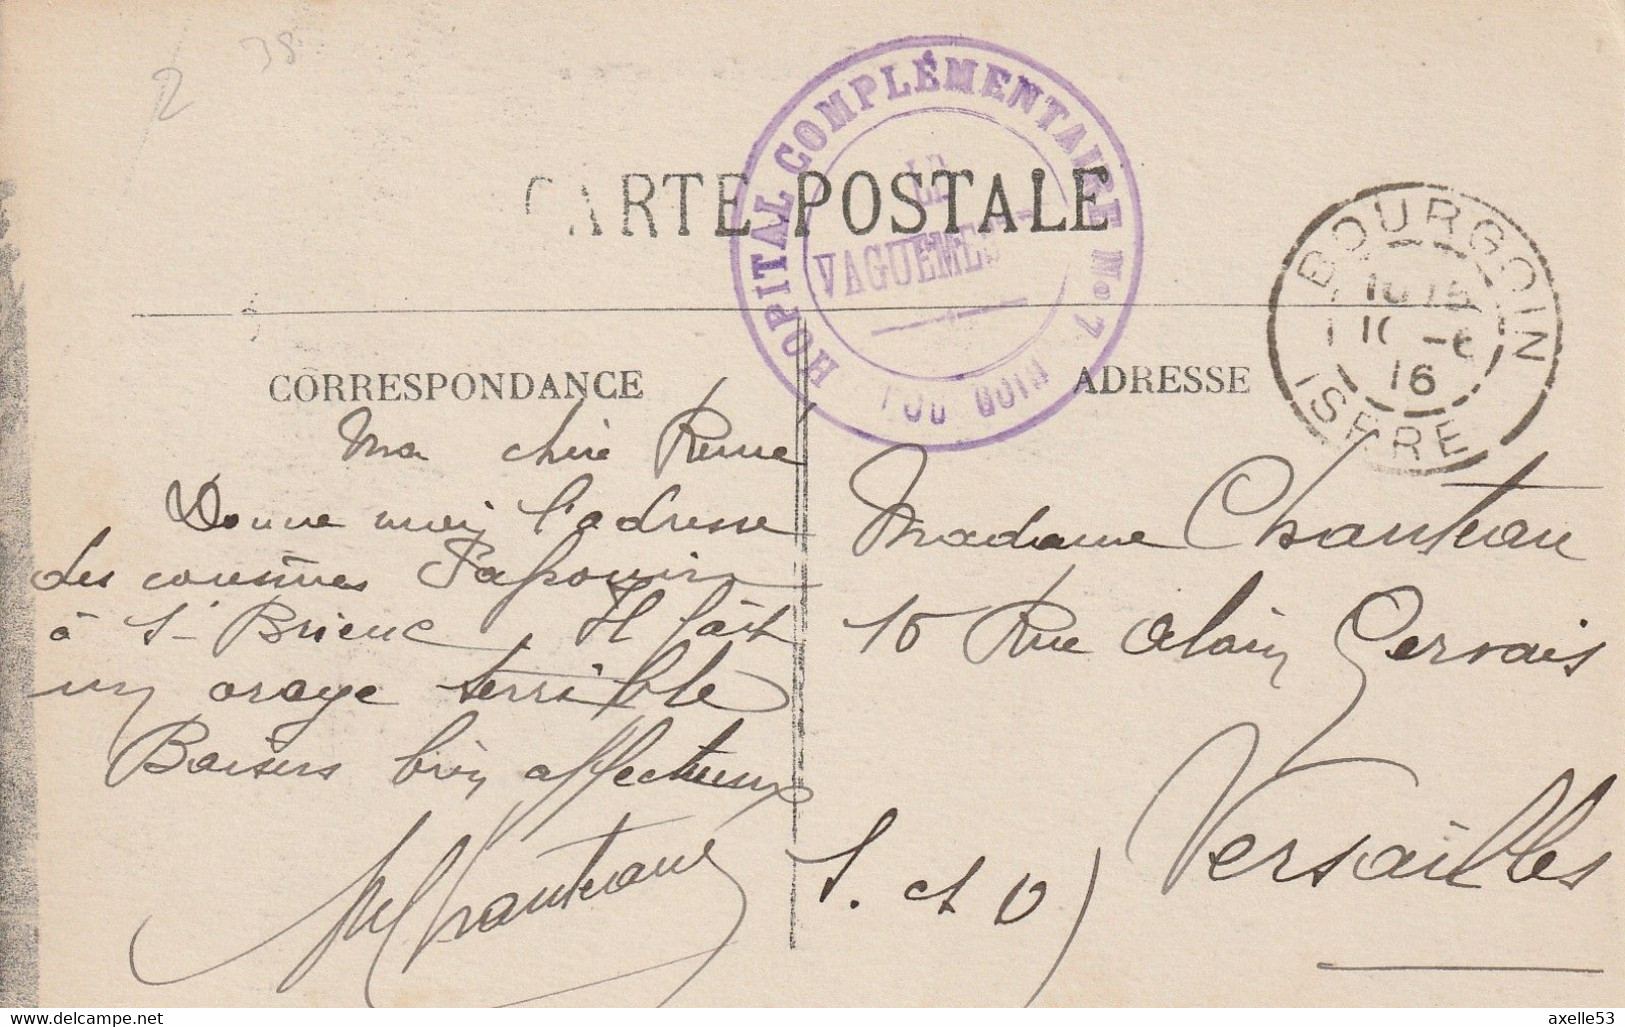 2
38
HOPITAL COMPLÉMENTAIRE No 7
LE
VAGUEMES
CARTE POSTALE
BOURGOIN
10 -6
16
ISERE
CORRESPONDANCE
ADRESSE
Ma chère Renée
Donne moi l'adresse
des cousines
à St Brieuc Il fait
un orage terrible
Baisers bien affectueux
Chanteau
Madame Chanteau
10 Rue Alain Gervais
Versailles
S. et O)
axelle53
www.delcampe.net